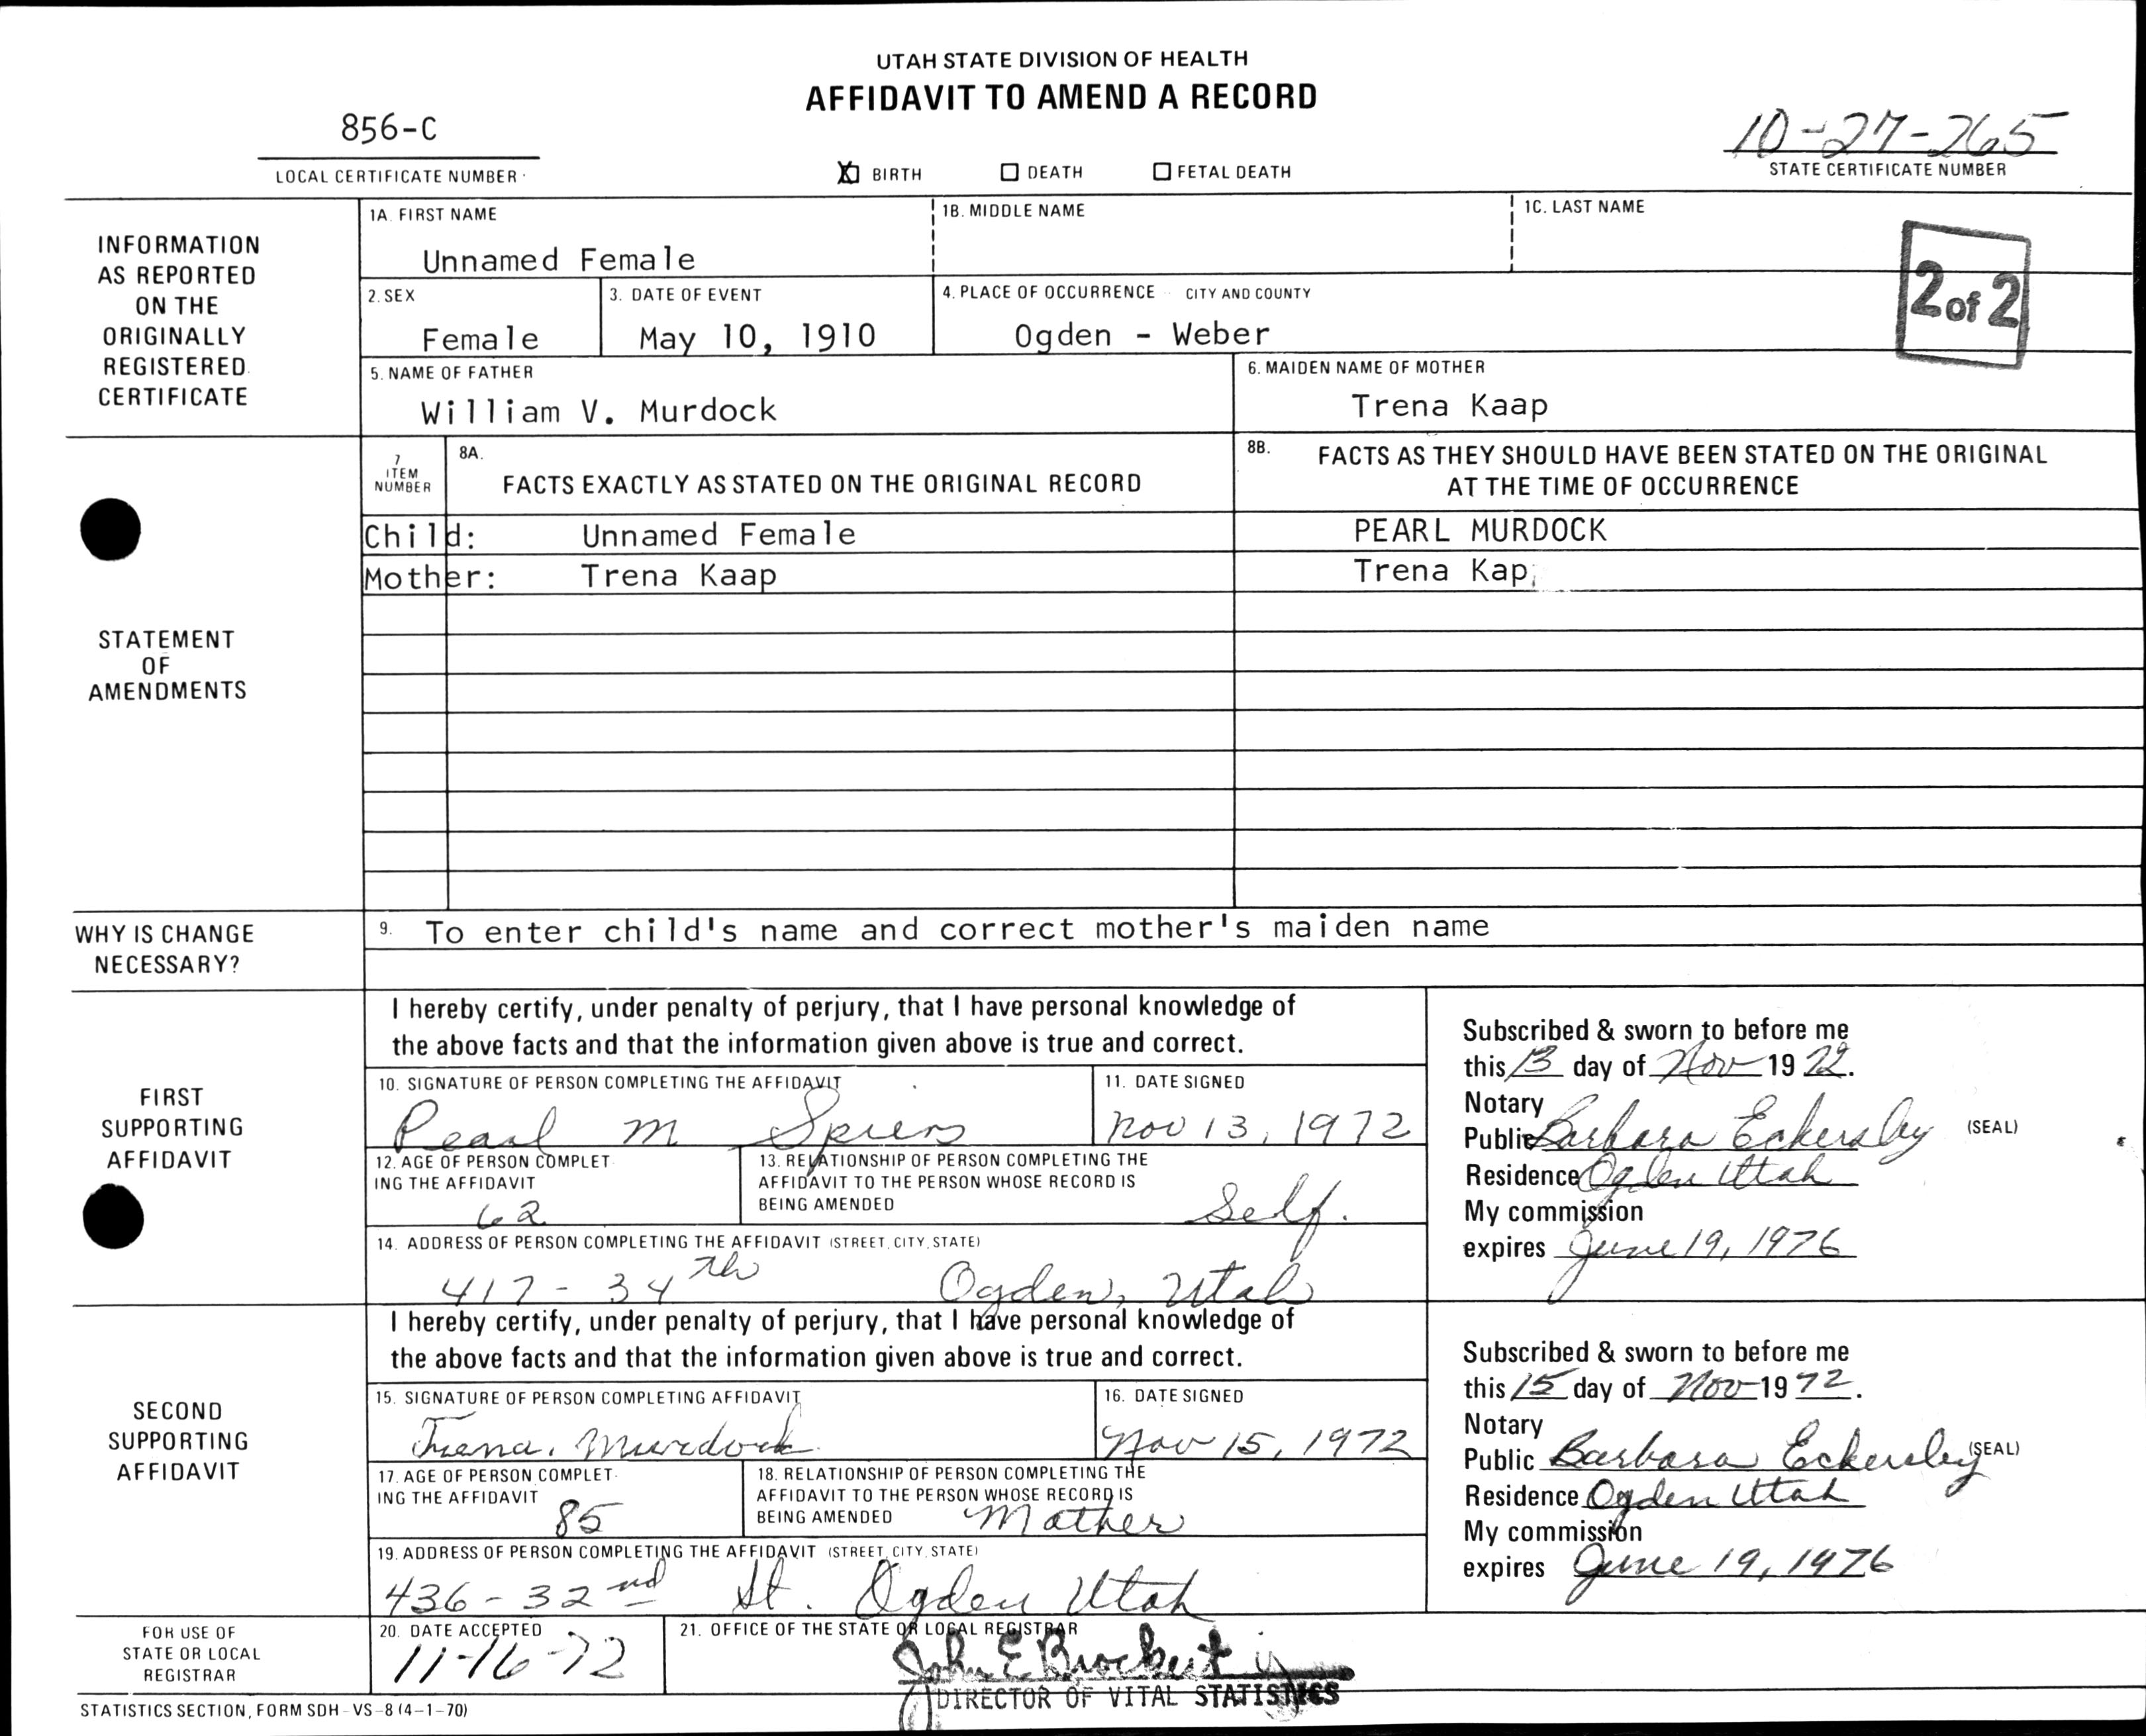 UTAH STATE DIVISION OF HEALTH
AFFIDAVIT TO AMEND A RECORD
856-C
LOCAL CERTIFICATE NUMBER
X BIRTH DEATH FETAL DEATH
10-27-265
STATE CERTIFICATE NUMBER
INFORMATION AS REPORTED ON THE ORIGINALLY REGISTERED CERTIFICATE
1A. FIRST NAME 1B. MIDDLE NAME 1C. LAST NAME
Unnamed Female
2 of 2
2. SEX 3. DATE OF EVENT 4. PLACE OF OCCURRENCE CITY AND COUNTY
Female May 10, 1910 Ogden - Weber
5. NAME OF FATHER 6. MAIDEN NAME OF MOTHER
William V. Murdock Trena Kaap
STATEMENT OF AMENDMENTS
7 ITEM NUMBER
8A. FACTS EXACTLY AS STATED ON THE ORIGINAL RECORD
8B. FACTS AS THEY SHOULD HAVE BEEN STATED ON THE ORIGINAL
AT THE TIME OF OCCURRENCE
Child: Unnamed Female PEARL MURDOCK
Mother: Trena Kaap Trena Kap
WHY IS CHANGE NECESSARY?
9. To enter child's name and correct mother's maiden name
FIRST SUPPORTING AFFIDAVIT
I hereby certify, under penalty of perjury, that I have personal knowledge of
the above facts and that the information given above is true and correct.
10. SIGNATURE OF PERSON COMPLETING THE AFFIDAVIT 11. DATE SIGNED
Pearl M Spiers Nov 13, 1972
12. AGE OF PERSON COMPLET-
ING THE AFFIDAVIT
62
13. RELATIONSHIP OF PERSON COMPLETING THE
AFFIDAVIT TO THE PERSON WHOSE RECORD IS
BEING AMENDED Self.
14. ADDRESS OF PERSON COMPLETING THE AFFIDAVIT (STREET, CITY, STATE)
417 - 34th Ogden, Utah
Subscribed & sworn to before me
this 13 day of Nov 19 72.
Notary
Public Barbara Eckersley (SEAL)
Residence Ogden Utah
My commission
expires June 19, 1976
SECOND SUPPORTING AFFIDAVIT
I hereby certify, under penalty of perjury, that I have personal knowledge of
the above facts and that the information given above is true and correct.
15. SIGNATURE OF PERSON COMPLETING AFFIDAVIT 16. DATE SIGNED
Trena. Murdock Nov 15, 1972
17. AGE OF PERSON COMPLET-
ING THE AFFIDAVIT
85
18. RELATIONSHIP OF PERSON COMPLETING THE
AFFIDAVIT TO THE PERSON WHOSE RECORD IS
BEING AMENDED Mother
19. ADDRESS OF PERSON COMPLETING THE AFFIDAVIT (STREET, CITY, STATE)
436 - 32nd St. Ogden Utah
Subscribed & sworn to before me
this 15 day of Nov 19 72.
Notary
Public Barbara Eckersley (SEAL)
Residence Ogden Utah
My commission
expires June 19, 1976
FOR USE OF STATE OR LOCAL REGISTRAR
20. DATE ACCEPTED 21. OFFICE OF THE STATE OR LOCAL REGISTRAR
11-16-72 John E Brockert
DIRECTOR OF VITAL STATISTICS
STATISTICS SECTION, FORM SDH-VS-8 (4-1-70)